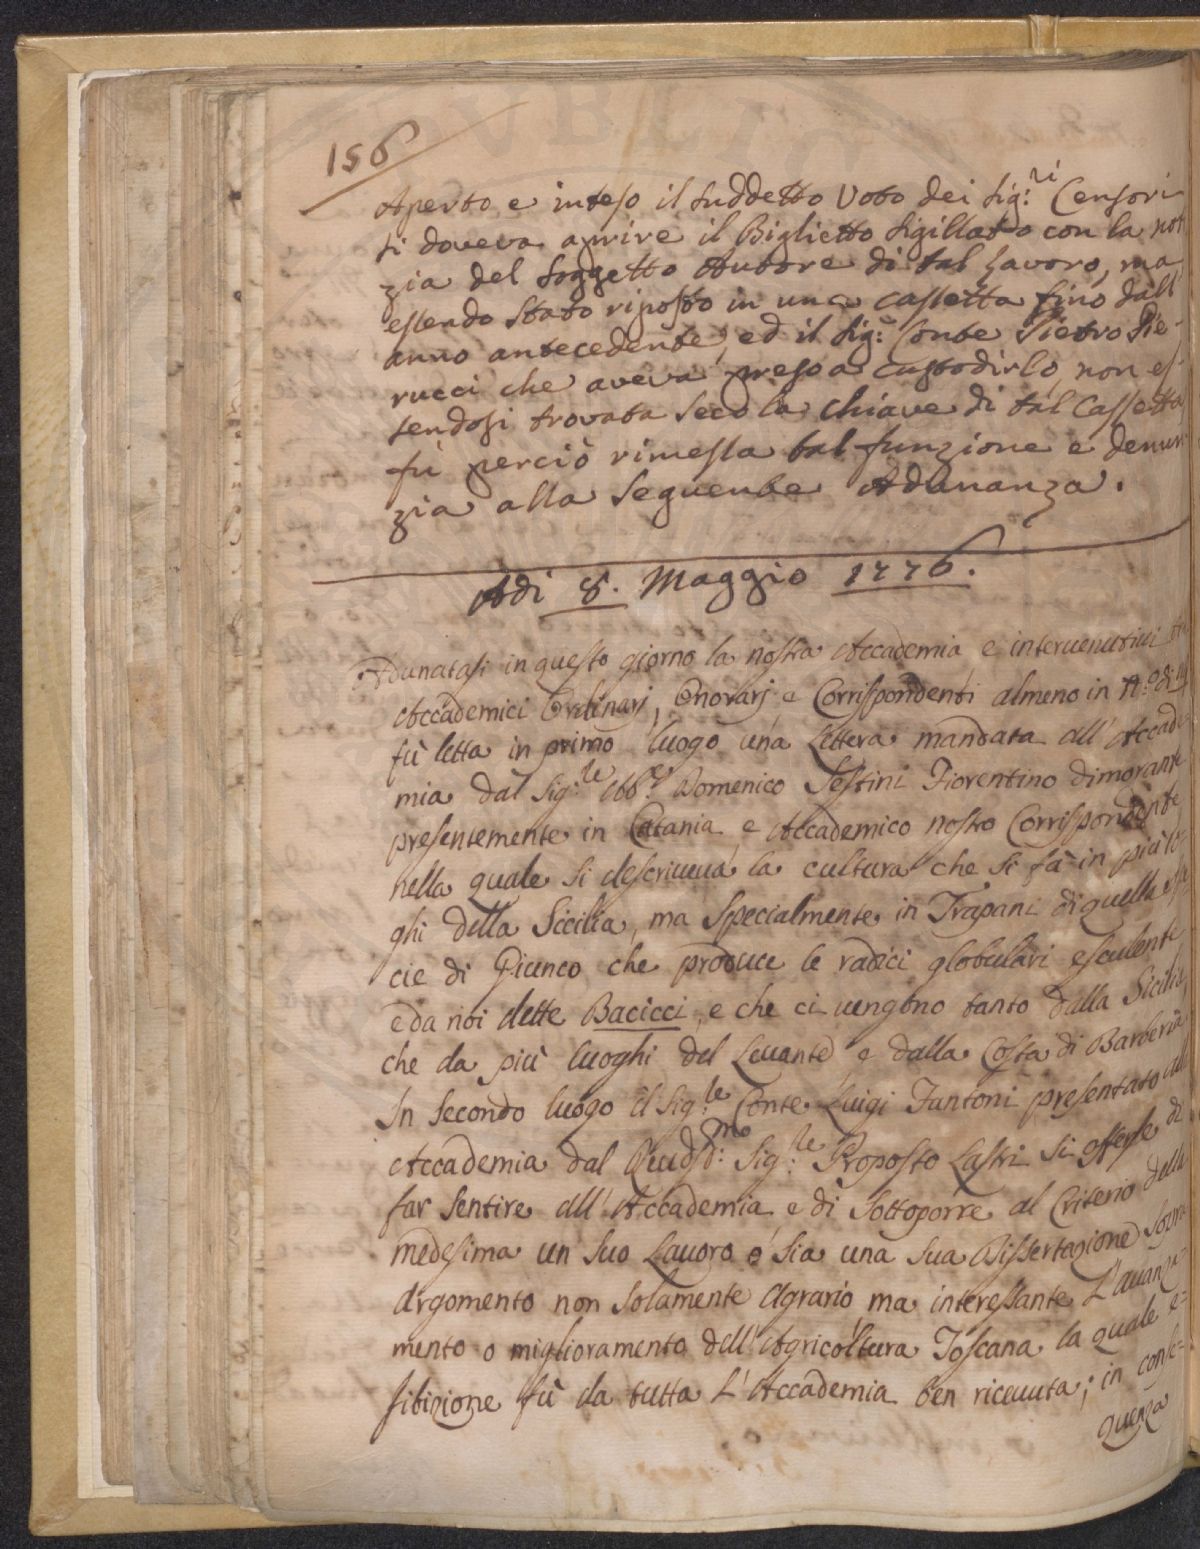 156
Aperto e inteso il suddetto Voto dei Sig:ri Censori
si doveva aprire il Biglietto sigillato con la noti
zia del soggetto Autore di tal Lavoro, ma
essendo stato riposto in una cassetta fino dall'
anno antecedente, ed il Sig:r Conte Pietro Pie-
rucci che aveva preso a custodirlo, non es-
sendosi trovata seco la chiave di tal Cassetta
fù perciò rimessa tal funzione e denun
zia alla seguente Adunanza.
Adi 8. Maggio 1776.
Adunatasi in questo giorno la nostra Accademia e intervenutivi
Accademici Ordinarj, Onorarj e Corrispondenti almeno in N:o di
fù letta in primo luogo una Lettera mandata all' Accade
mia dal Sig:re Abb:e Domenico Sestini Fiorentino dimorante
presentemente in Catania e Accademico nostro Corrispondente,
nella quale si descriveva la cultura che si fà in più lo
ghi della Sicilia, ma specialmente in Trapani di quella spe
cie di Giunco che produce le radici globulari esculente
e da noi dette Bacicci, e che ci vengono tanto dalla Sicilia,
che da più luoghi del Levante e dalla Costa di Barberia
In secondo luogo il Sig:re Conte Luigi Fantoni presentato all
Accademia dal Sig:re Proposto Lastri si offerse di
far sentire all' Accademia e di sottoporre al Criterio della
medesima un suo Lavoro o sia una sua Dissertazione sopra
Argomento non solamente Agrario, ma interessante L'avanza-
mento o miglioramento dell' Agricoltura Toscana la quale e-
sibizione fù da tutta L'Accademia ben ricevuta; in conse-
quenza